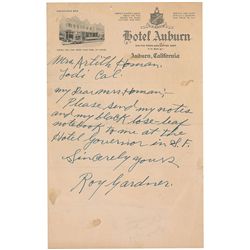 Hotel Auburn
Auburn, California
Mrs Artith Homan.
Lodi Cal.
My dear Mrs Homan:-
Please send my notes
and my black loose-leaf
notebook to me at the
Hotel Governor in S.F.
Sincerely yours
Roy Gardner.